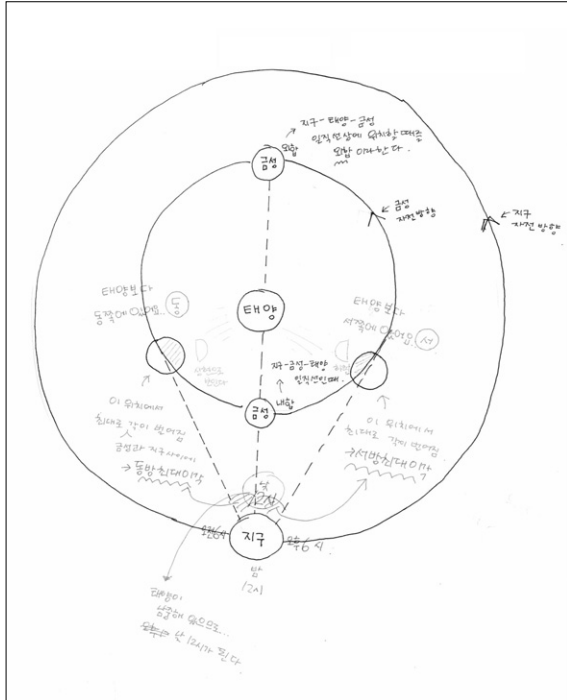 지구-태양-금성
일직선상에 위치할 때를
외합 이라한다.
외합
금성
금성
자전방향
지구
자전방향
태양보다
동쪽에 있어요.
동
태양
태양보다
서쪽에 있어요
서
지구-금성-태양
일직선인때.
내합
금성
이 위치에서
최대로 각이 벌어짐
금성과 지구사이에
→ 동방최대이각
이 위치에서
최대로 각이 벌어짐
→ 서방최대이각
낮
12시
지구
오후6시
밤
12시
태양이
남중해 있으므로...
낮 12시가 된다